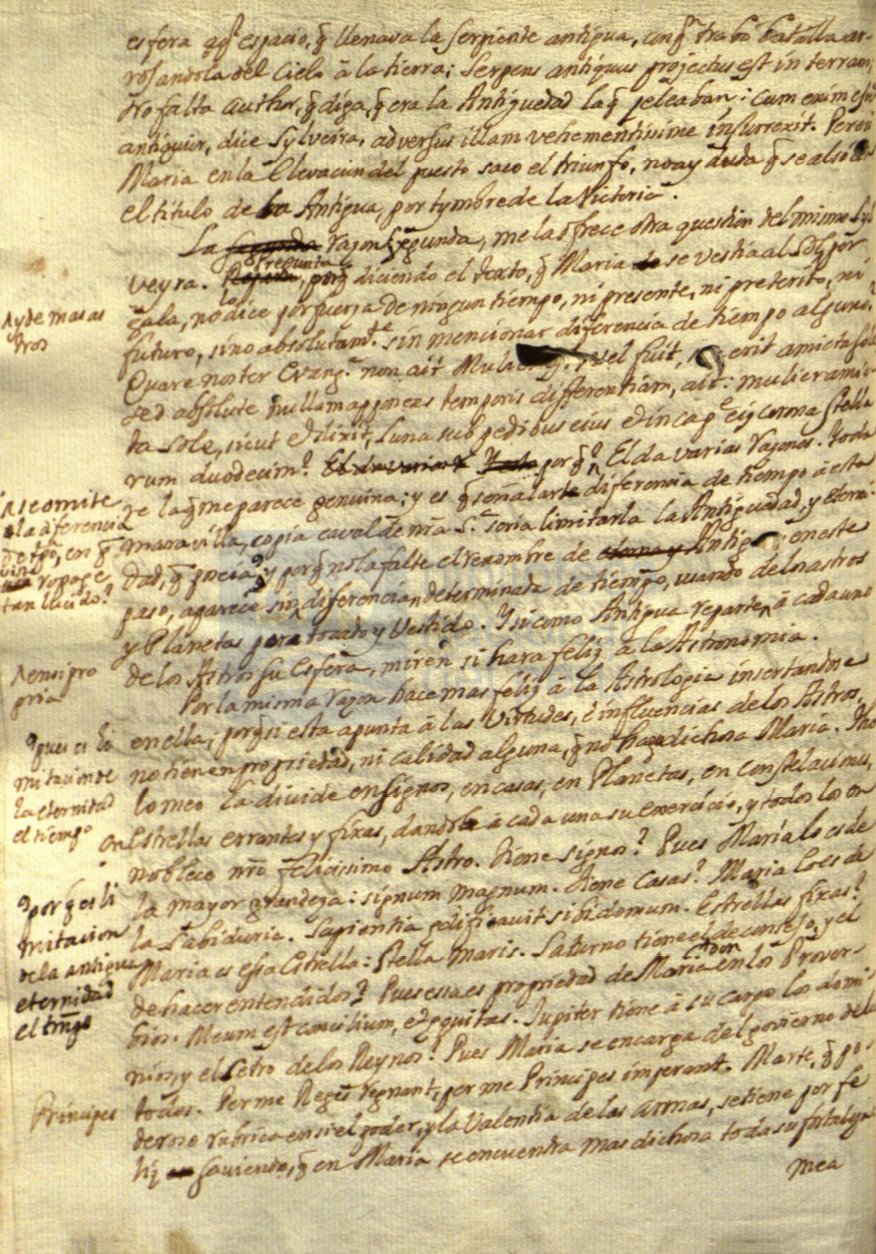 esfera aql espacio, q̃ llenava la Serpiente antigua, con qn trabó batalla ar-
rojandola del Cielo à la tierra; Serpens antiquus projectus est in terram;
No falta Author, q̃ diga, q̃ era la Antiguedad la q̃ peleaban: Cum enim esset
antiquior, dice Sylveira, adversus illam vehementissime insurrexit. Pero si
Maria en la Elevacion del puesto saco el triunfo, no ay duda q̃ se alsó
el titulo de la Antigua, por tymbre de la Victoria.
La segunda rason segunda, me la ofrece otra question del mismo Syl
veyra. Pregunta, porq̃ diciendo el texto, q̃ Maria se vestia al Sol por
gala, no lo dice por fuerza de ningun tiempo, ni presente, ni preterito, ni
Ay de mas as
tros
futuro, sino absolutamte. sin mencionar diferencia de tiempo alguno?
Quare noster Evang. non ait Mulier vel fuit, erit amicta sole
sed absolute nullam apponens temporis differentiam, ait: mulier amic-
ta sole, sicut et dixit, Luna sub pedibus eius et in capte eius corona stella
rum duodecim? por q̃? El da varias rasones. Yo da
re la q̃ me parece genuina: y es q̃ señalarle diferencia de tiempo a esta
maravilla, copia caval de nra Sa. seria limitarla la Antiguedad, y eterni-
dad, q̃ poseía; y porq̃ no la falte el renombre de eterna y Antigua en este
paso, aparece sin diferencia determinada de tiempo, usando de los astros
y Planetas para tocado y Vestido. Y si como Antigua reparte à cada uno
de los Astros su Esfera, miren si hara feliz à la Astronomia.
se omite
la diferencia
de tpo, en q̃
ropage
tan llucido?
Por la misma rason hace mas feliz à la Astrologia insertandose
en ella; porq̃ si esta apunta à las Virtudes, è influencias de los Astros,
no tienen propriedad, ni calidad alguna, q̃ no haga dichosa Maria. Tho
lomeo la divide en signos, en casas, en Planetas, en constelaciones,
en Estrellas errantes y fixas, dandole à cada una su exercicio, y todos los en
noblece nro felicissimo Astro. Tiene signos? Pues Maria lo es de
la mayor grandeza: signum magnum. Tiene Casas? Maria lo es de
la Sabiduria. Sapientia edificavit sibi domum. Estrellas fixas?
Maria es essa Estrella: Stella maris. Saturno tiene el don de consejo, y el
de hacer entendidos? Pues essa es propriedad de Maria en los Prover-
bios. Meum est concilium, et equitas. Jupiter tiene à su cargo los domi
nios, y el Cetro de los Reynos? Pues Maria se encarga del govierno de
todos. Per me Reges regnant, per me Principes imperant. Marte, q̃ po-
deroso rubrica en si el poder, y la Valentia de las armas, se tiene por fe
liz saviendo, q̃ en Maria se encuentra mas dichosa toda su fortaleza
pria
pues es li
mitacion de
la eternidad
el tiempo
porq̃ es li
mitacion
de la antigua
eternidad
el tmpo
Principes
mea